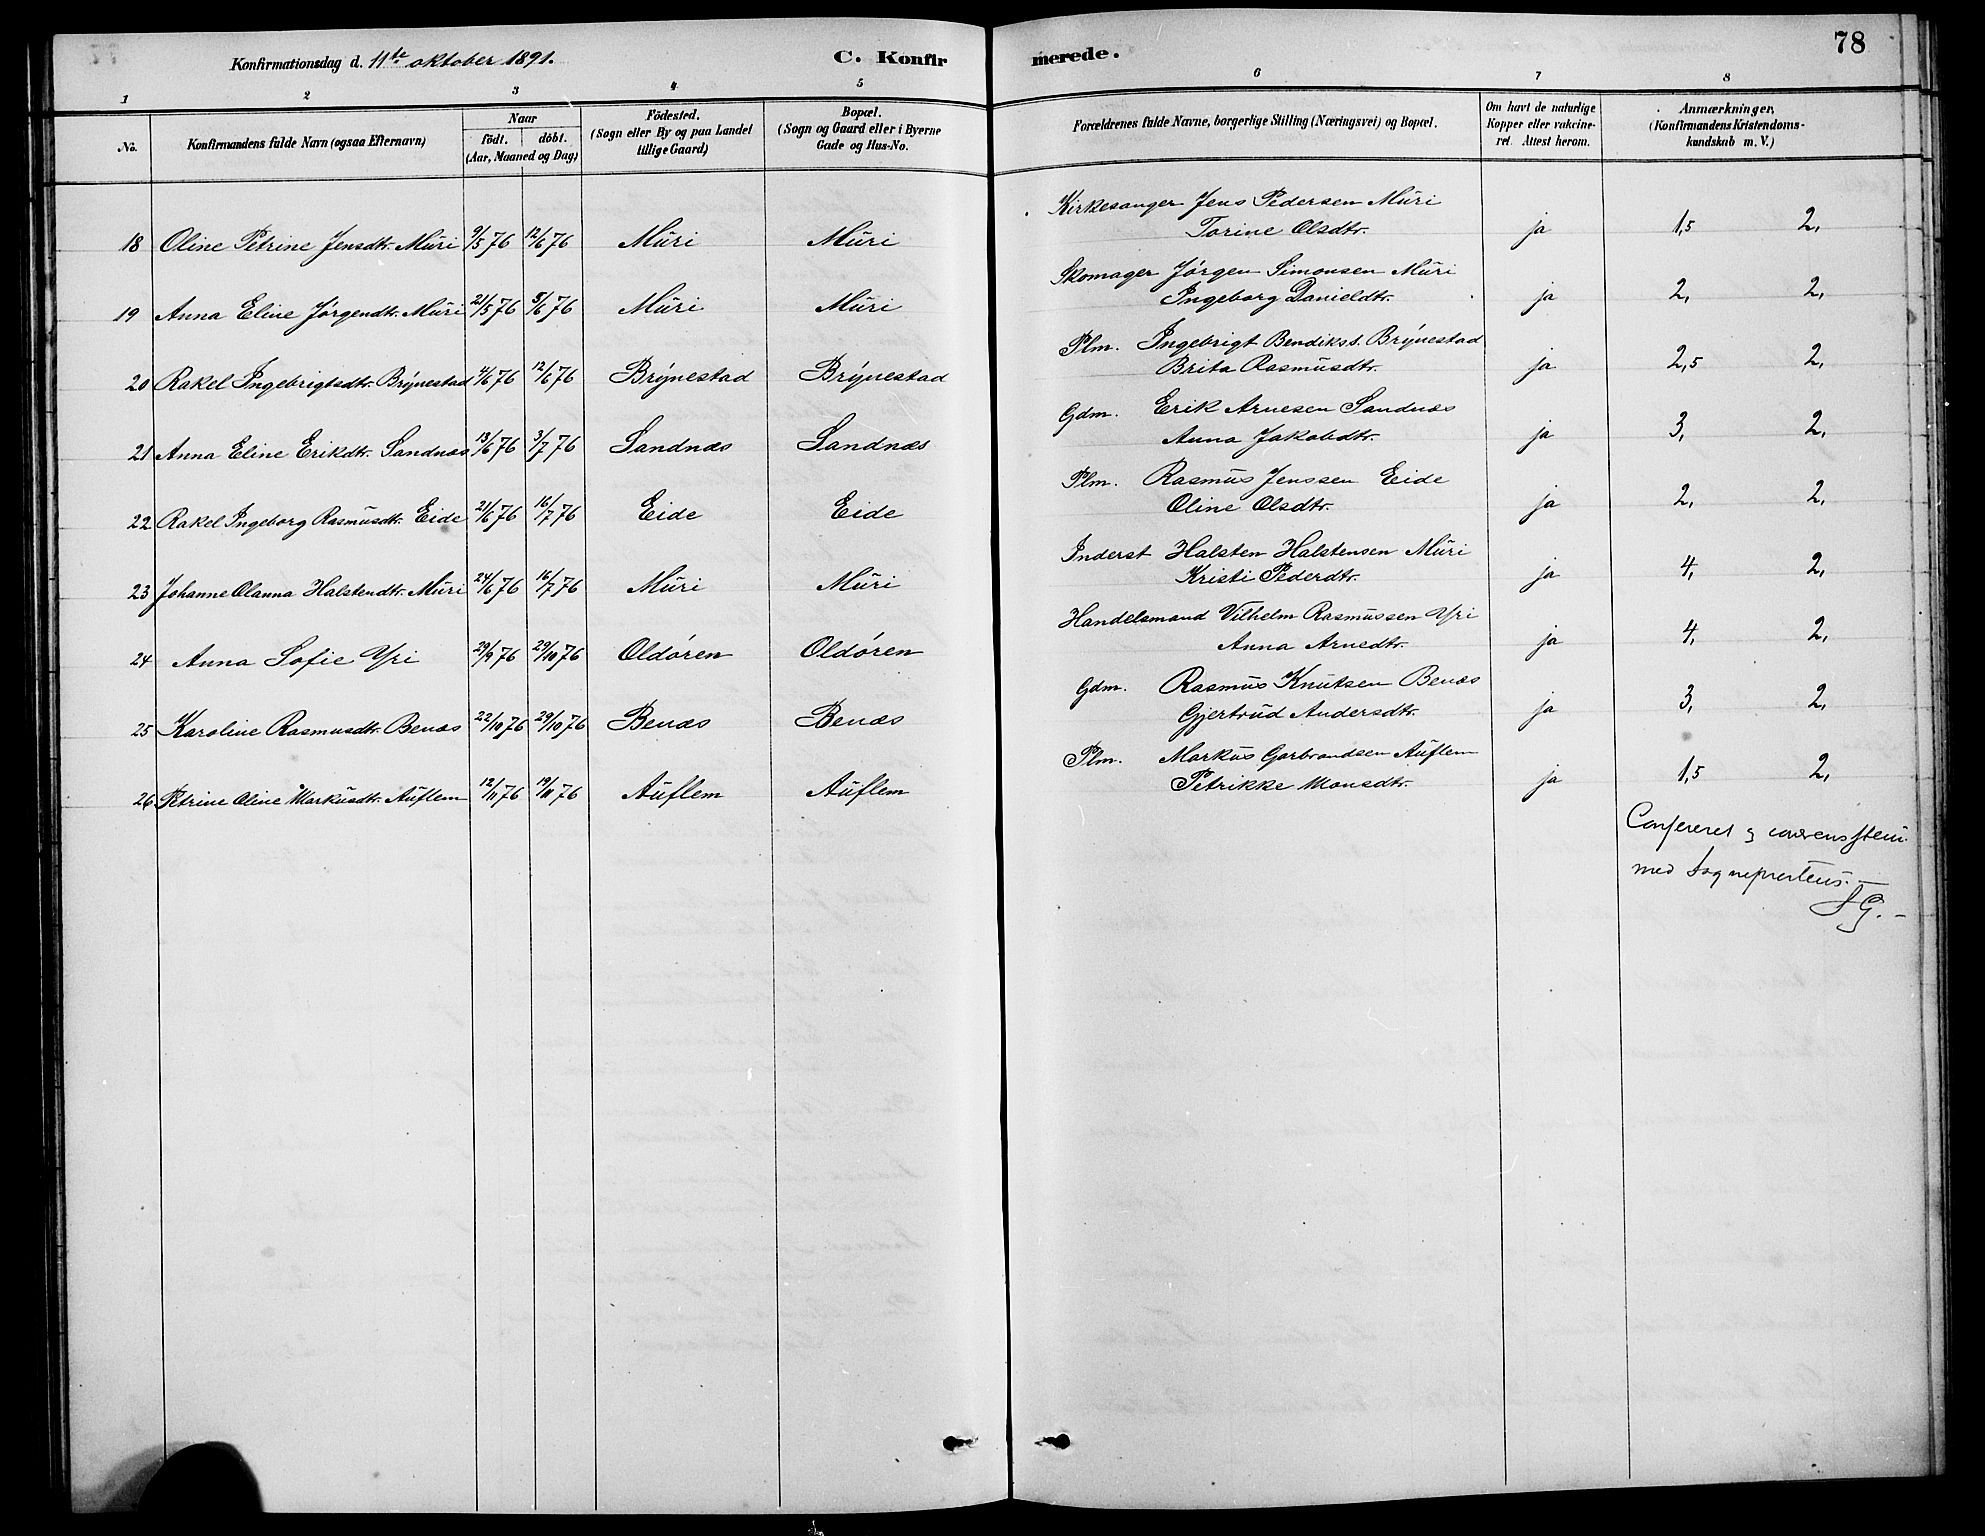 78
Konfirmationsdag d. 11te oktober 1891. C. Konfirmerede.
1 2 3 4 5 6 7 8
No. Konfirmandens fulde Navn (ogsaa Efternavn) Naar födt. döbt. (Aar, Maaned og Dag) Födested. (Sogn eller By og paa Landet tillige Gaard) Bopæl. (Sogn og Gaard eller i Byerne Gade og Hus-No. Forældrenes fulde Navne, borgerlige Stilling (Næringsvei) og Bopæl. Om havt de naturlige Kopper eller vakcineret. Attest herom. Anmærkninger, (Konfirmandens Kristendomskundskab m. V.)
Kirkesanger Jens Pedersen Muri
18 Oline Petrine Jensdtr. Muri 9/5 76 12/6 76 Muri Muri Torine Olsdtr. ja 1,5 2,
Skomager Jørgen Simonsen Muri
19 Anna Eline Jørgendtr. Muri 21/5 76 5/6 76 Muri Muri Ingeborg Danieldtr. ja 2, 2,
Plm. Ingebrigt Bendikss. Brynestad
20 Rakel Ingebrigtsdtr. Brynestad 4/6 76 12/6 76 Brynestad Brynestad Brita Rasmusdtr. ja 2,5 2,
Gdm. Erik Arnesen Sandnæs
21 Anna Eline Erikdtr. Sandnæs 13/6 76 3/7 76 Sandnæs Sandnæs Anna Jakobdtr. ja 3, 2,
Plm. Rasmus Jenssen Eide
22 Rakel Ingeborg Rasmusdtr. Eide 21/6 76 16/7 76 Eide Eide Oline Olsdtr. ja 2, 2,
Inderst Halsten Halstensen Muri
23 Johanne Olanna Halstendtr. Muri 24/6 76 16/7 76 Muri Muri Kristi Pederdtr. ja 4, 2,
Handelsmand Vilhelm Rasmussen Yri
24 Anna Sofie Yri 29/9 76 29/10 76 Oldøren Oldøren Anna Arnedtr. ja 4, 2,
Gdm. Rasmus Knutsen Benæs
25 Karoline Rasmusdtr. Benæs 22/10 76 29/10 76 Benæs Benæs Gjertrud Andersdtr. ja 3, 2,
Plm. Markus Garbrandsen Auflem
26 Petrine Oline Markusdtr. Auflem 12/11 76 19/11 76 Auflem Auflem Petrikke Monsdtr. ja 1,5 2,
Confereret
med Sogneprestens.